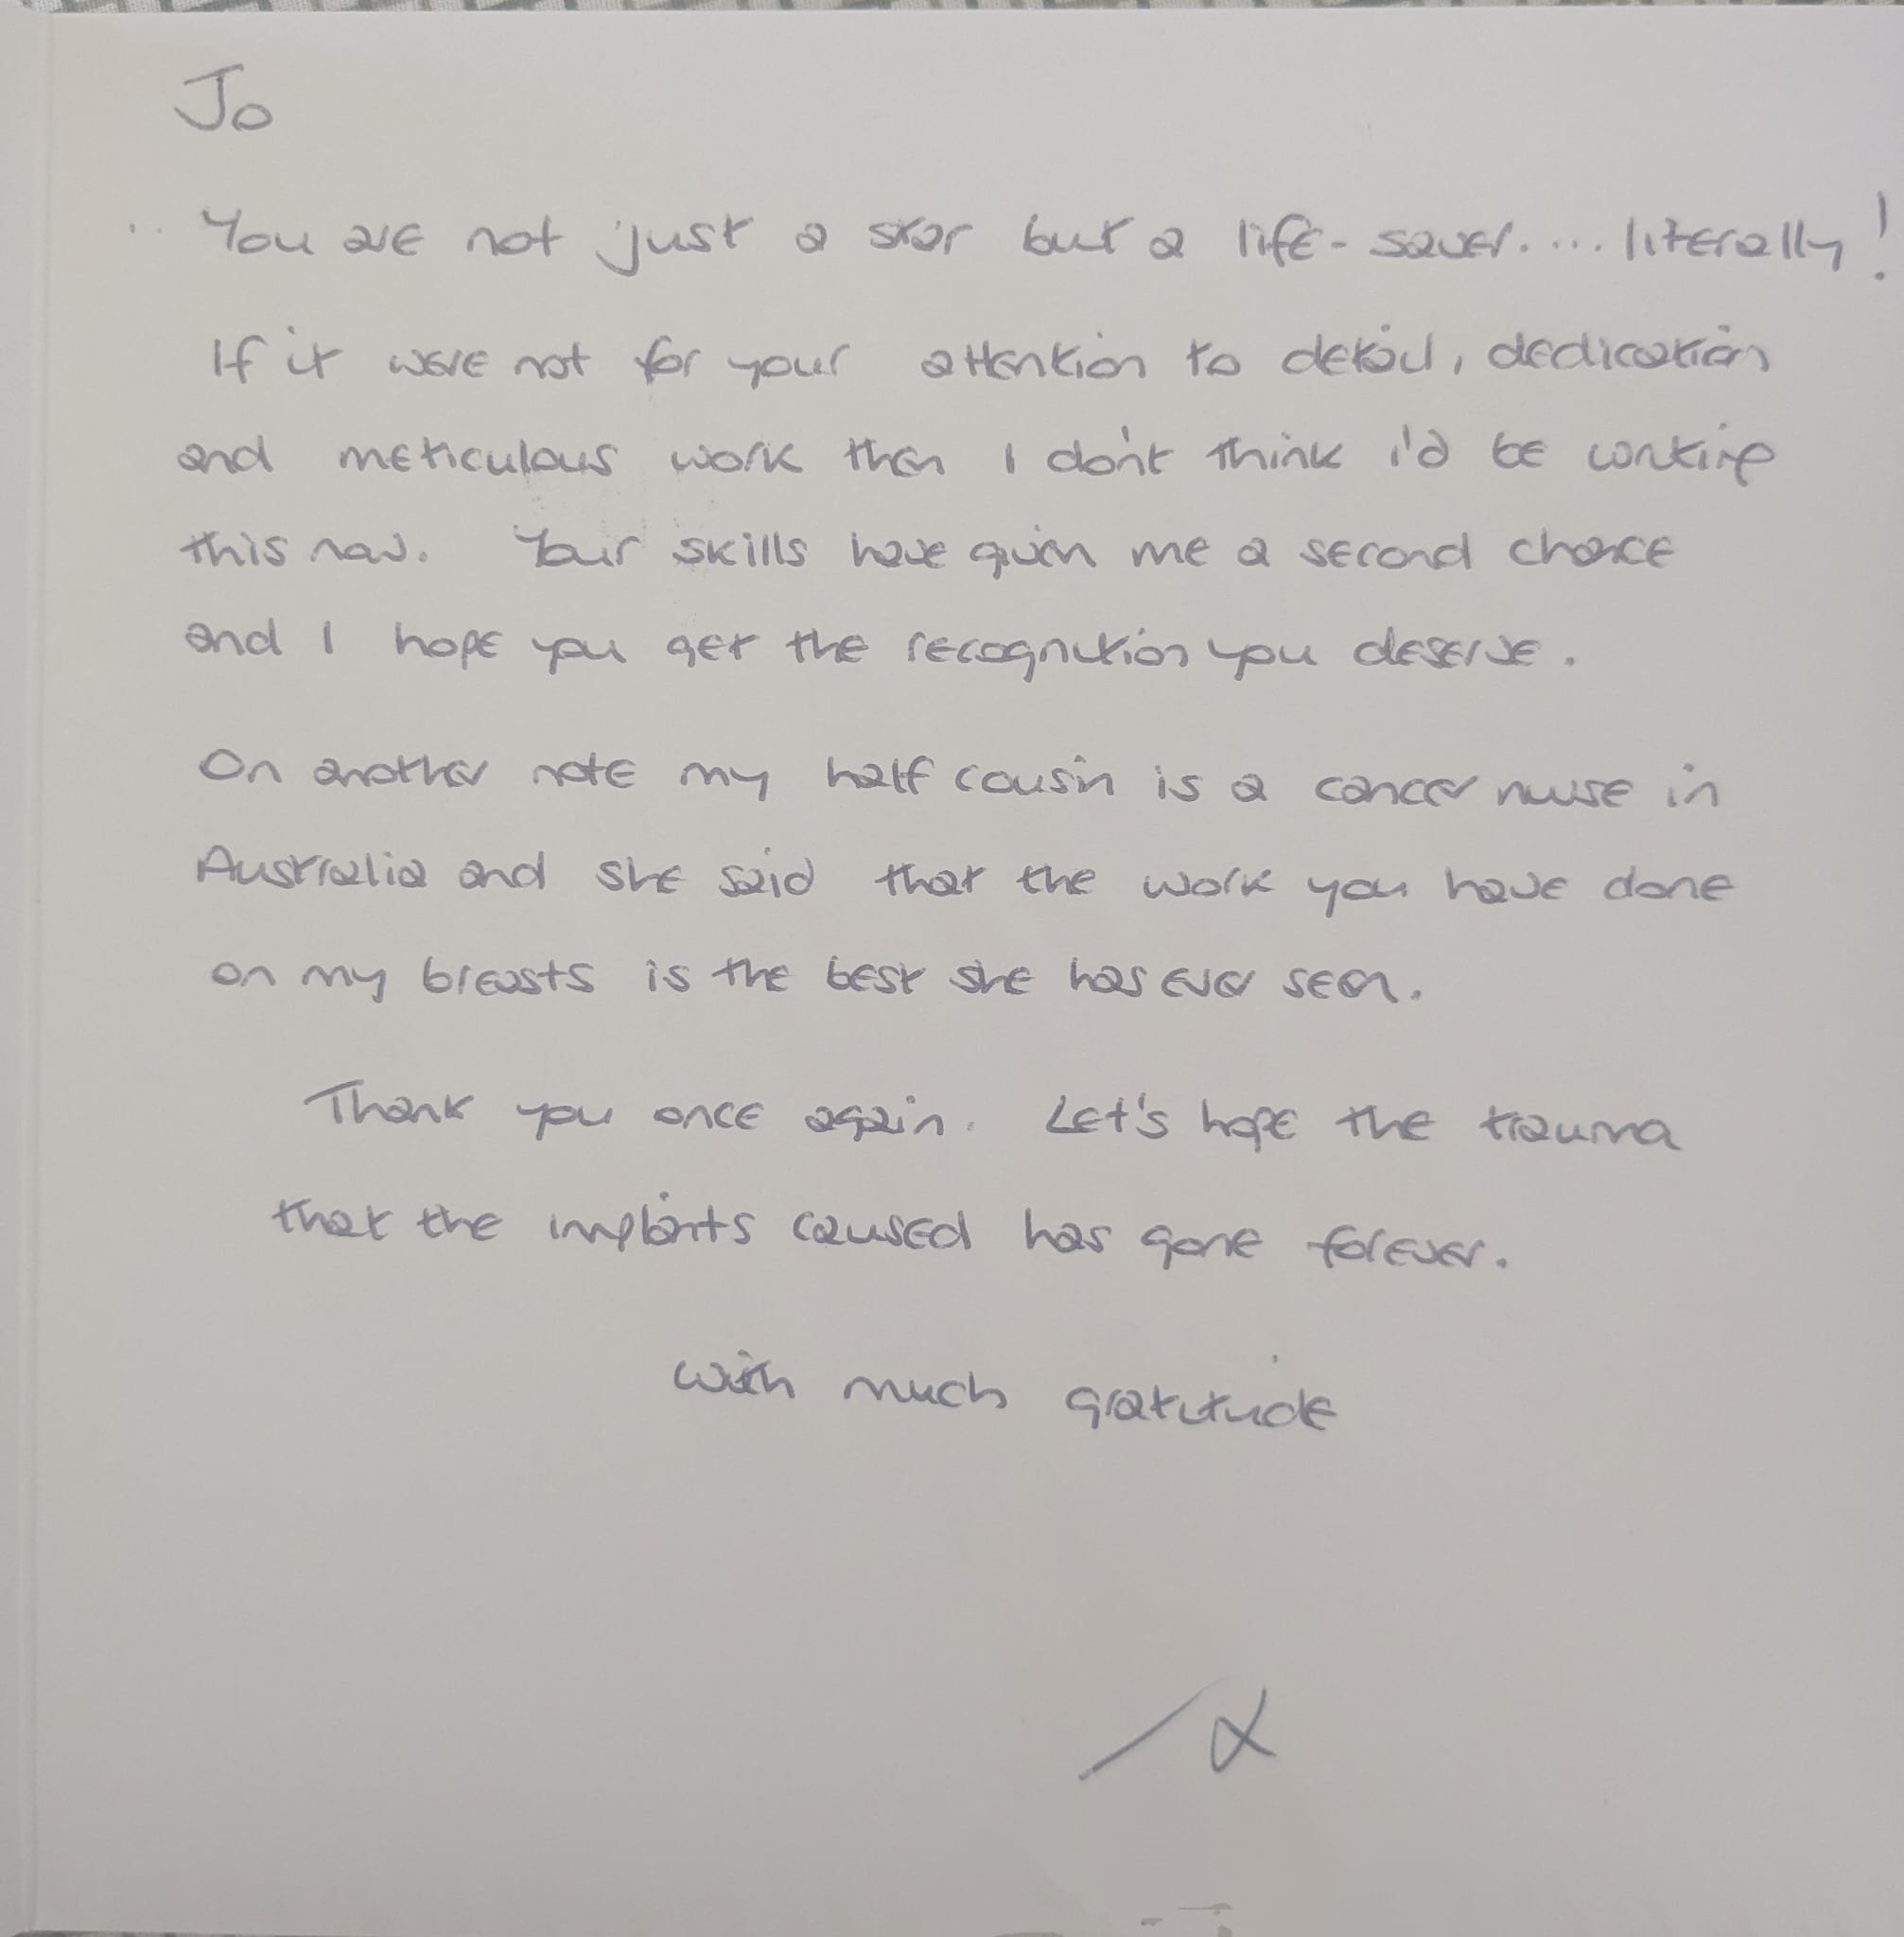 Jo
.. You are not just a star but a life-saver.... literally!
If it were not for your attention to detail, dedication
and meticulous work then I don't think i'd be writing
this now. Your skills have given me a second chance
and I hope you get the recognition you deserve.
On another note my half cousin is a cancer nurse in
Australia and she said that the work you have done
on my breasts is the best she has ever seen.
Thank you once again. Let's hope the trauma
that the implants caused has gone forever.
with much gratitude